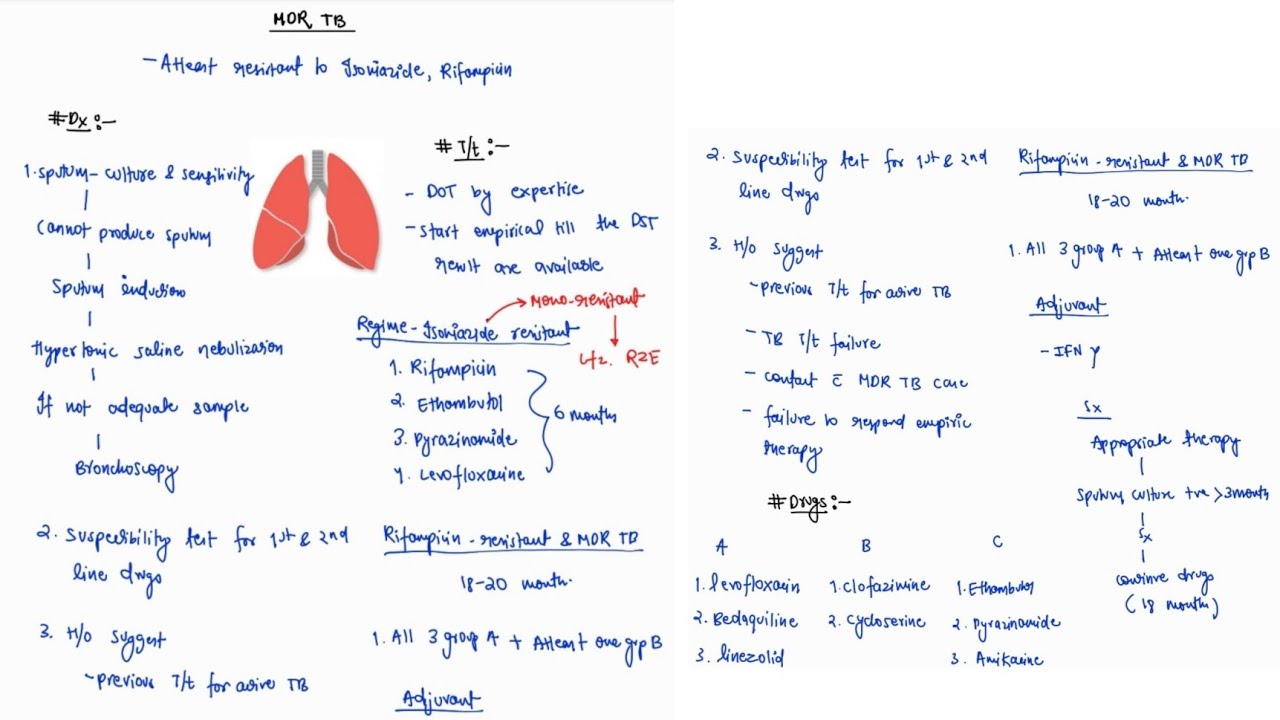 MDR TB
- Atleast resistant to Isoniazide, Rifampicin
# Dx :-
1. sputum - culture & sensitivity
Cannot produce sputum
Sputum induction
Hypertonic saline nebulization
If not adequate sample
Bronchoscopy
2. Suspectibility test for 1st & 2nd
line drugs
3. H/o suggest
- previous T/t for active TB
# T/t :-
- DOT by expertise
- start empirical till the DST
result are available
Regime - Isoniazide resistant
Mono-resistant
Hz. RZE
1. Rifampicin
2. Ethambutol
3. Pyrazinamide
4. Levofloxacine
6 months
Rifampicin - resistant & MDR TB
18-20 month.
1. All 3 group A + Atleast one grp B
Adjuvant
2. Suspectibility test for 1st & 2nd
line drugs
3. H/o suggest
- previous T/t for active TB
- TB T/t failure
- contact c̄ MDR TB case
- failure to respond empiric
therapy
# Drugs :-
A
1. levofloxacin
2. Bedaquiline
3. linezolid
B
1. Clofazimine
2. Cycloserine
C
1. Ethambutol
2. Pyrazinamide
3. Amikacine
Rifampicin - resistant & MDR TB
18-20 month.
1. All 3 group A + Atleast one grp B
Adjuvant
- IFN γ
Sx
Appropriate therapy
Sputum culture +ve > 3 month
Sx
continue drugs
(18 month)